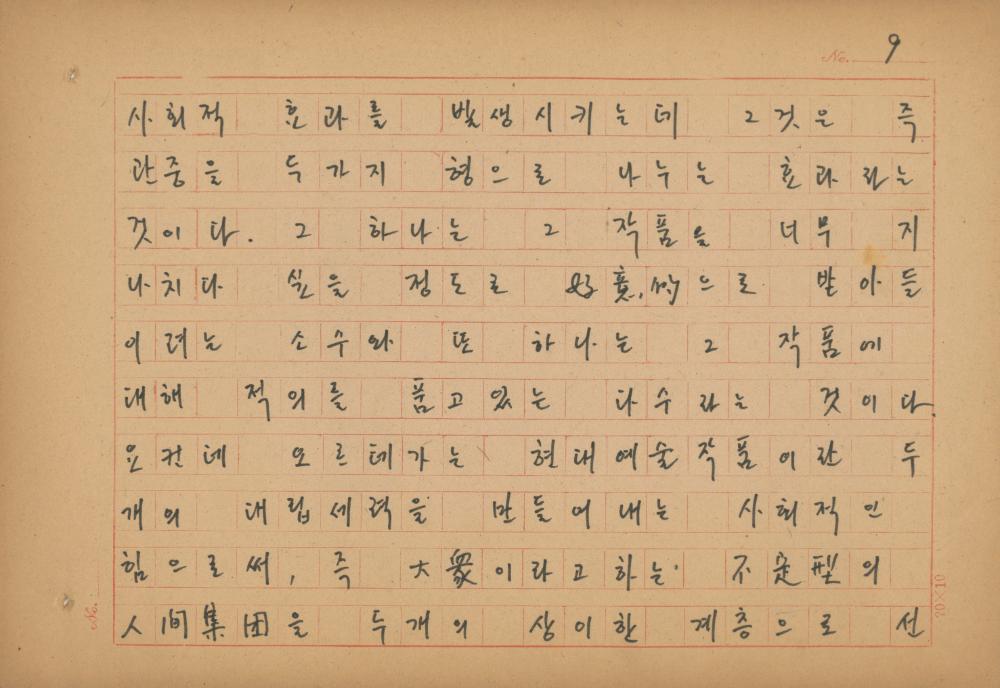 No. 9
사회적 효과를 발생시키는데 그것은 즉
관중을 두가지 형으로 나누는 효과라는
것이다. 그 하나는 그 작품을 너무 지
나치다 싶을 정도로 好意的으로 받아들
이려는 소수와 또 하나는 그 작품에
대해 적의를 품고 있는 다수라는 것이다.
요컨데 오르테가는 현대예술작품이란 두
개의 대립세력을 만들어내는 사회적인
힘으로써, 즉 大衆이라고 하는 不定型의
人間集団을 두개의 상이한 계층으로 선
No.
20×10